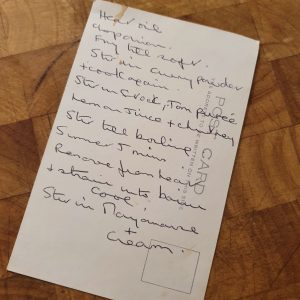 Heat oil
chop onion.
Fry till soft.
Stir in curry powder
+ cook again.
Stir in stock, Tom Pureé
Lemon Juice + chutney
Stir till boiling
Simmer 5 mins
Remove from heat
+ strain into basin
Cool.
Stir in Mayonnaise
+
Cream.
POST CARD